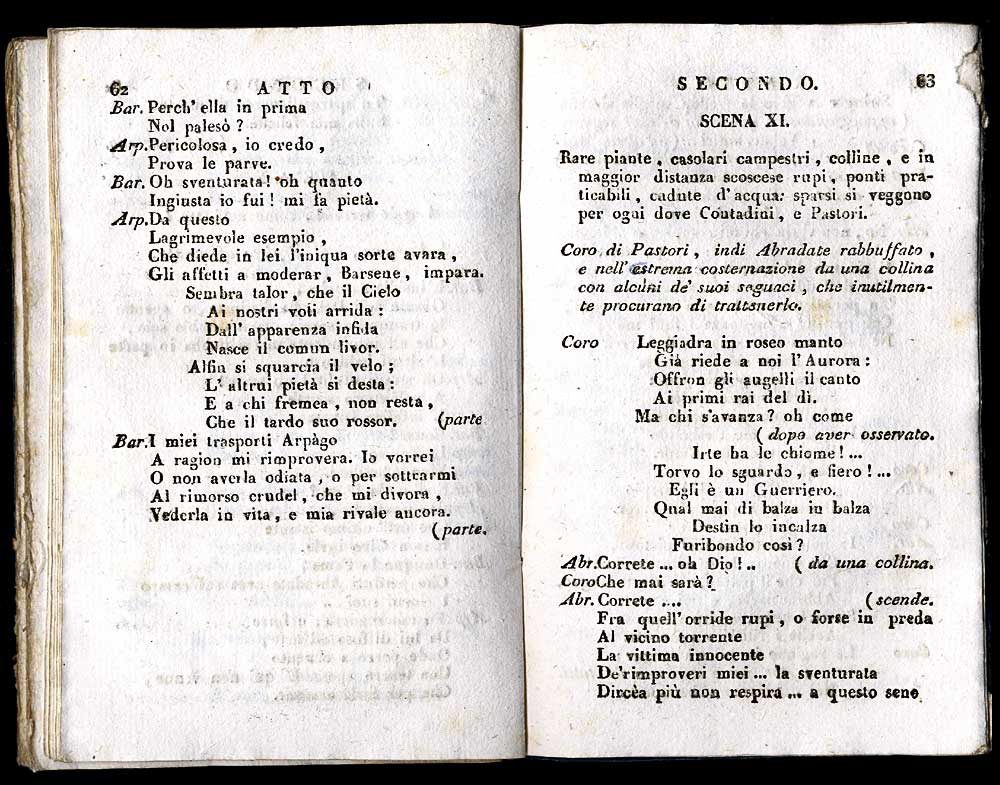 62 ATTO
Bar. Perch' ella in prima
Nol palesò ?
Arp. Pericolosa , io credo ,
Prova le parve.
Bar. Oh sventurata! oh quanto
Ingiusta io fui ! mi fa pietà.
Arp. Da questo
Lagrimevole esempio ,
Che diede in lei l'iniqua sorte avara ,
Gli affetti a moderar , Barsene , impara.
Sembra talor , che il Cielo
Ai nostri voti arrida :
Dall' apparenza infida
Nasce il comun livor.
Alfin si squarcia il velo ;
L' altrui pietà si desta :
E a chi fremea , non resta ,
Che il tardo suo rossor. (parte
Bar. I miei trasporti Arpàgo
A ragion mi rimprovera. Io vorrei
O non averla odiata , o per sottrarmi
Al rimorso crudel , che mi divora ,
Vederla in vita , e mia rivale ancora.
(parte.
SECONDO. 63
SCENA XI.
Rare piante , casolari campestri , colline , e in
maggior distanza scoscese rupi , ponti pra-
ticabili , cadute d' acqua: sparsi si veggono
per ogni dove Contadini , e Pastori.
Coro di Pastori , indi Abradate rabbuffato ,
e nell' estrema costernazione da una collina
con alcuni de' suoi seguaci , che inutilmen-
te procurano di trattenerlo.
Coro Leggiadra in roseo manto
Già riede a noi l' Aurora :
Offron gli augelli il canto
Ai primi rai del dì.
Ma chi s'avanza ? oh come
( dopo aver osservato.
Irte ha le chiome ! ...
Torvo lo sguardo , e fiero ! ...
Egli è un Guerriero.
Qual mai di balza in balza
Destin lo incalza
Furibondo così ?
Abr. Correte ... oh Dio ! .. ( da una collina.
Coro Che mai sarà ?
Abr. Correte .... (scende.
Fra quell' orride rupi , o forse in preda
Al vicino torrente
La vittima innocente
De' rimproveri miei ... la sventurata
Dircèa più non respira ... a questo seno